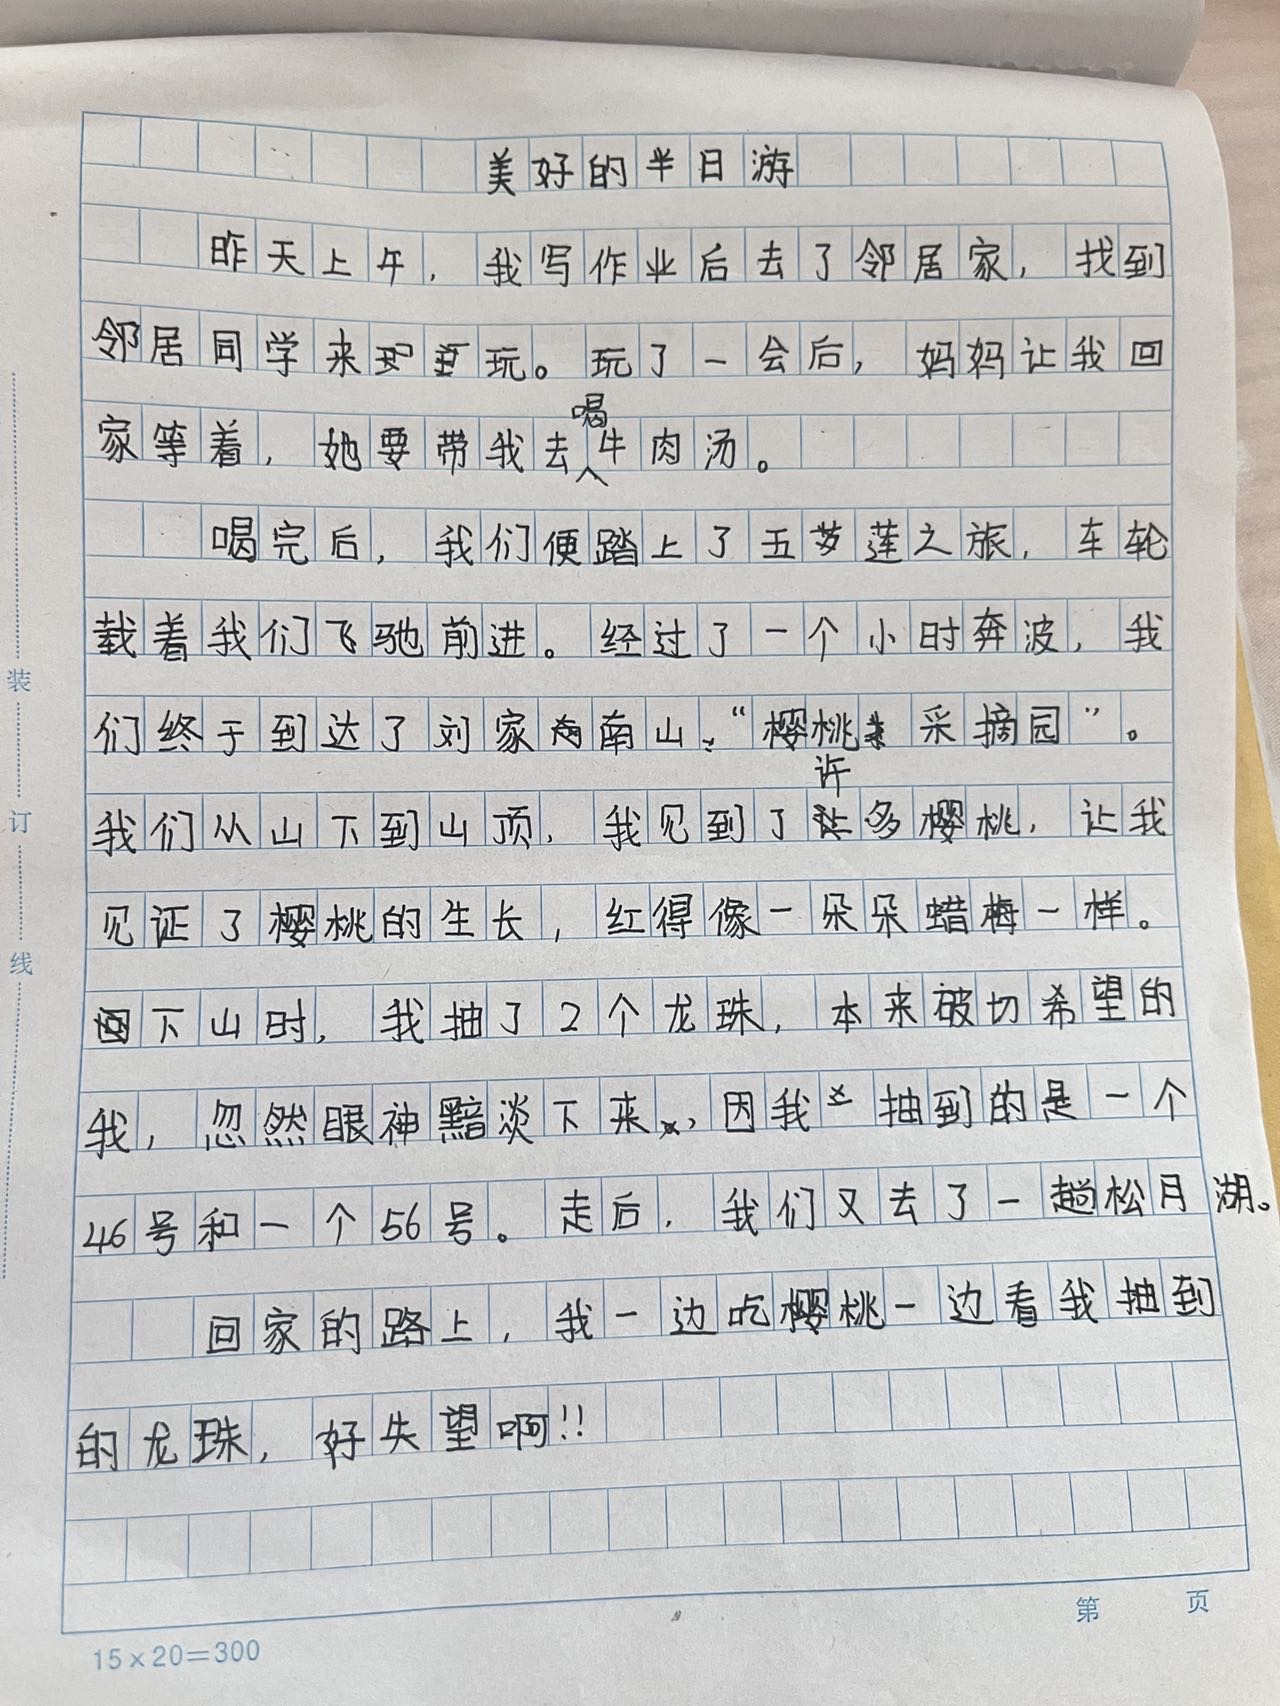 美好的半日游
昨天上午，我写作业后去了邻居家，找到
邻居同学来玩。玩了一会后，妈妈让我回
家等着，她要带我去喝牛肉汤。
喝完后，我们便踏上了五莲之旅，车轮
载着我们飞驰前进。经过了一个小时奔波，我
们终于到达了刘家南山“樱桃采摘园”。
我们从山下到山顶，我见到了许多樱桃，让我
见证了樱桃的生长，红得像一朵朵蜡梅一样。
下山时，我抽了2个龙珠，本来破切希望的
我，忽然眼神黯淡下来，因我抽到的是一个
46号和一个56号。走后，我们又去了一趟松月湖。
回家的路上，我一边吃樱桃一边看我抽到
的龙珠，好失望啊!!
装
订
线
第 页
15×20=300